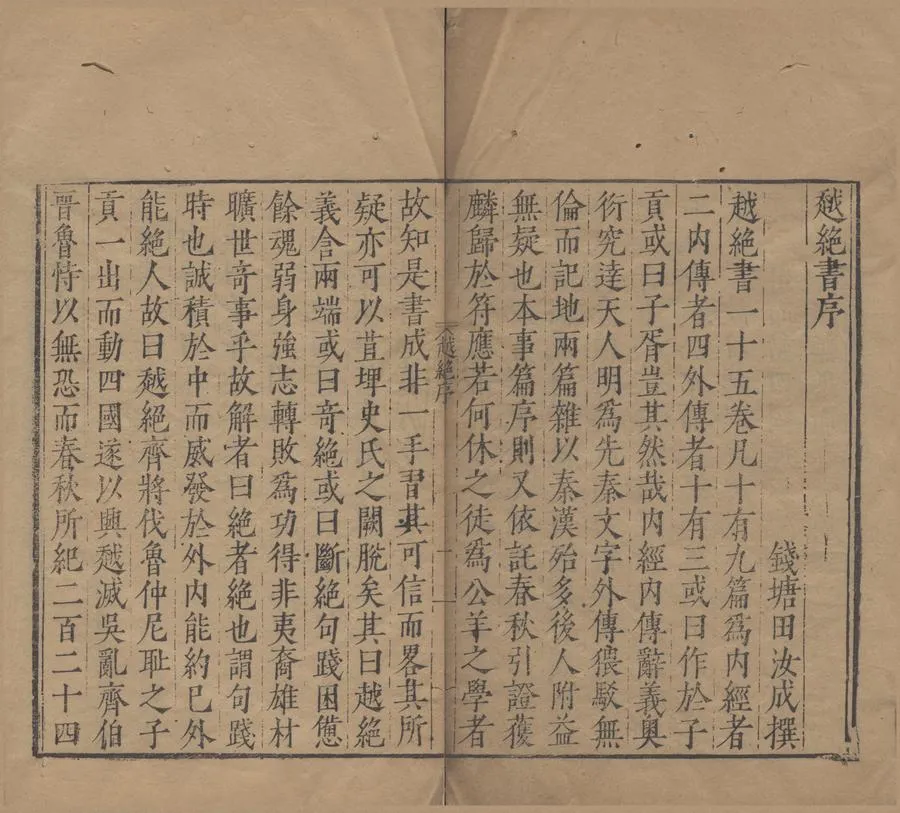 越絕書序
錢塘田汝成撰
越絕書一十五卷凡十有九篇爲內經者
二內傳者四外傳者十有三或曰作於子
貢或曰子胥豈其然哉內經內傳辭義奥
衍究達天人明爲先秦文字外傳猥駁無
倫而記地兩篇雜以秦漢殆多後人附益
無疑也本事篇序則又依託春秋引證獲
麟歸於符應若何休之徒爲公羊之學者
越絕序
一
故知是書成非一手習其可信而畧其所
疑亦可以苴埤史氏之闕脫矣其曰越絕
義含兩端或曰竒絕或曰斷絕句踐困憊
餘魂弱身強志轉敗爲功得非夷裔雄材
曠世竒事乎故解者曰絕者絕也謂句踐
時也誠積於中而威發於外內能約己外
能絕人故曰越絕齊將伐魯仲尼恥之子
貢一出而動四國遂以興越滅吳亂齊伯
晉魯恃以無恐而春秋所紀二百二十四